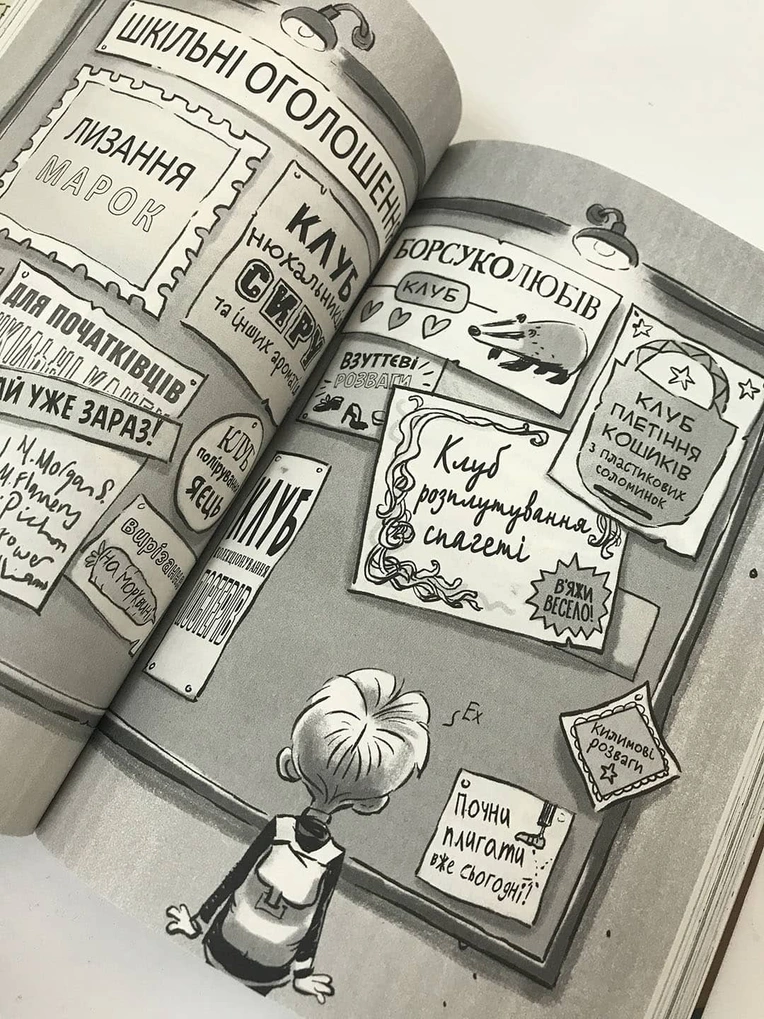 ШКІЛЬНІ ОГОЛОШЕНН
ЛИЗАННЯ
МАРОК
КЛУБ
НЮХАЛЬНИКІВ
СИРУ
та інших ароматів
ДЛЯ ПОЧАТКІВЦІВ
АЙ УЖЕ ЗАРАЗ!
M. Morgan S.
M. Flannery
Pichon
КЛУБ
полірування
ЯЄЦЬ
вирізання
НА МОРКВИНІ
БОРСУКОЛЮБІВ
КЛУБ
ВЗУТТЄВІ
РОЗВАГИ
КЛУБ
ПЛЕТІННЯ
КОШИКІВ
з пластикових
соломинок
Клуб
розплутування
спагеті
В'ЯЖИ
ВЕСЕЛО!
КЛУБ
Ех
Килимові
розваги
Почни
плигати
вже сьогодні!